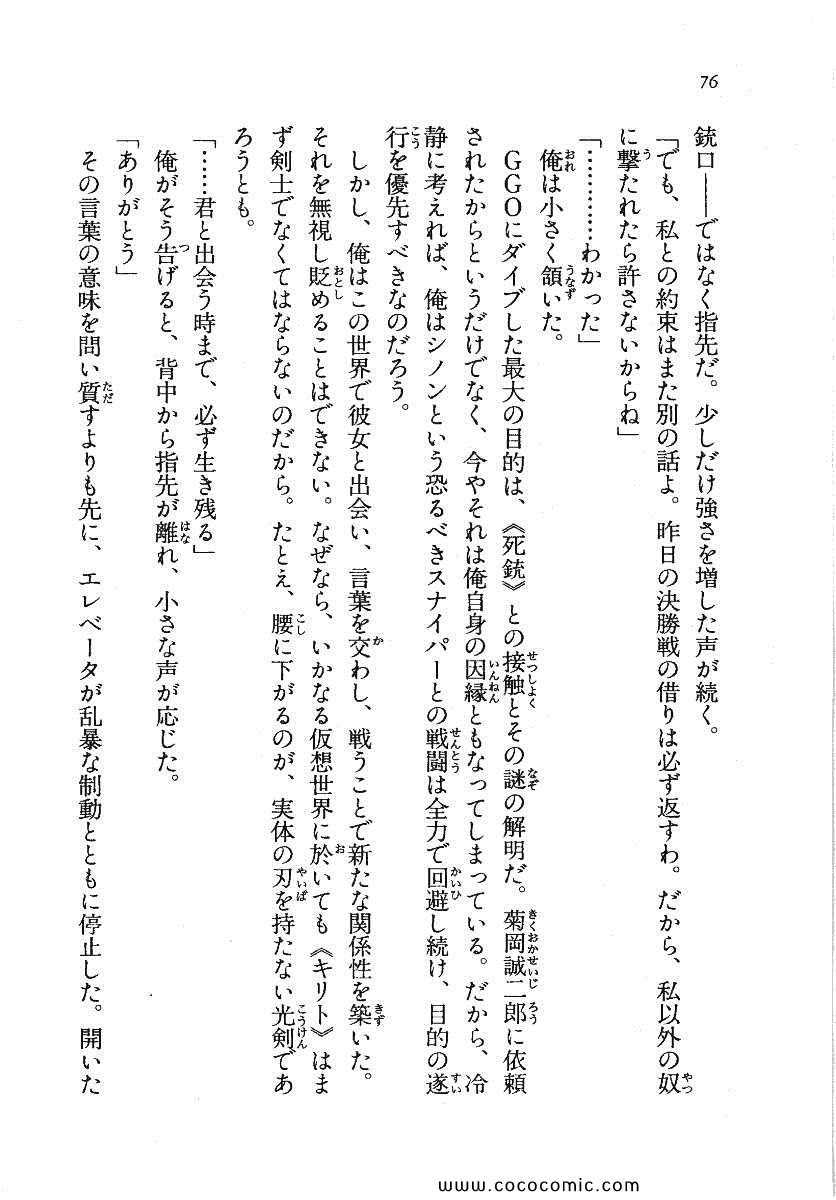 76
銃口――ではなく指先だ。少しだけ強さを増した声が続く。
「でも、私との約束はまた別の話よ。昨日の決勝戦の借りは必ず返すわ。だから、私以外の奴
に撃たれたら許さないからね」
「…………わかった」
俺は小さく頷いた。
GGOにダイブした最大の目的は、《死銃》との接触とその謎の解明だ。菊岡誠二郎に依頼
されたからというだけでなく、今やそれは俺自身の因縁ともなってしまっている。だから、冷
静に考えれば、俺はシノンという恐るべきスナイパーとの戦闘は全力で回避し続け、目的の遂
行を優先すべきなのだろう。
しかし、俺はこの世界で彼女と出会い、言葉を交わし、戦うことで新たな関係性を築いた。
それを無視し貶めることはできない。なぜなら、いかなる仮想世界に於いても《キリト》はま
ず剣士でなくてはならないのだから。たとえ、腰に下がるのが、実体の刃を持たない光剣であ
ろうとも。
「……君と出会う時まで、必ず生き残る」
俺がそう告げると、背中から指先が離れ、小さな声が応じた。
「ありがとう」
その言葉の意味を問い質すよりも先に、エレベータが乱暴な制動とともに停止した。開いた
www.cococomic.com